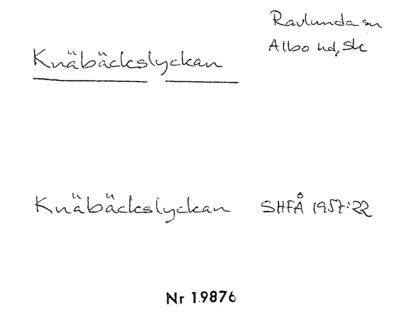 Ravlunda sn
Albo hd, Sk
Knäbäckslyckan
Knäbäckslyckan SHFÅ 1957:22
Nr 19876